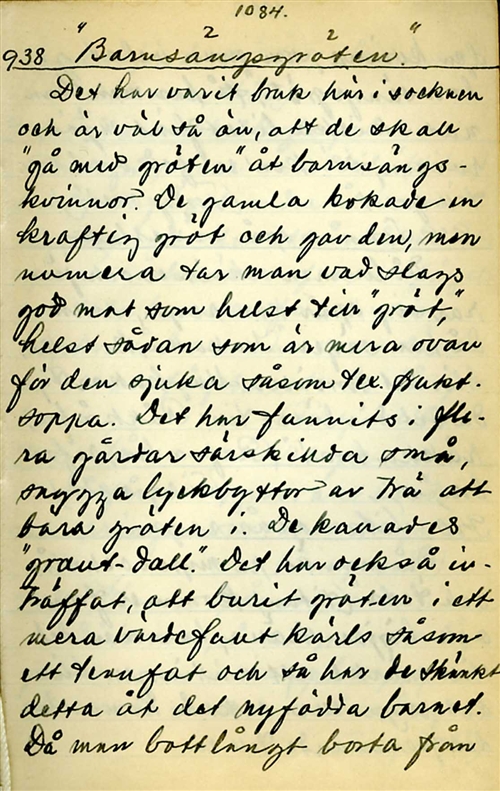 1084.
938 "Barnsängsgröten."
2 2
Det har varit bruk här i socknen
och är väl så än, att de skall
"gå med gröten" åt barnsängs-
kvinnor. De gamla kokade en
kraftig gröt och gav den, men
numera tar man vad slags
god mat som helst till "gröt,"
helst sådan som är mera ovan
för den sjuka såsom t.ex. frukt-
soppa. Det har funnits i fle-
ra gårdar särskilda små,
snygga lyckbyttor av trä att
bära gröten i. De kallades
"graut-dall." Det har också in-
träffat, att burit gröten i ett
mera värdefullt kärls såsom
ett tennfat och så har de skänkt
detta åt det nyfödda barnet.
Då man bott långt borta från